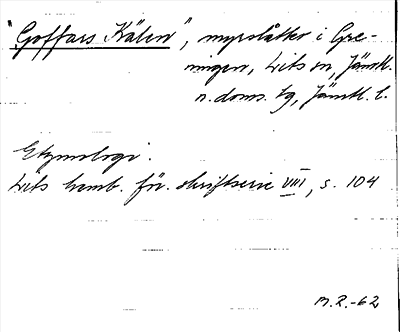 "Goffars Kälen", myrslåtter i Gre-
ningen, Lits sn, Jämtl.
n. doms. tg, Jämtl. l.
Etymologi.
Lits hemb. för. skriftserie VIII, s. 104
M.R.-62